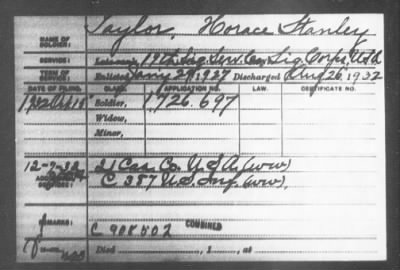 NAME OF SOLDIER: Taylor, Horace Stanley
SERVICE: Late rank, 19th Sig. Serv. Co., Sig. Corps,
TERM OF SERVICE: Enlisted Jany 27, 1927 Discharged Aug 26, 1932
DATE OF FILING. CLASS. APPLICATION NO. LAW. CERTIFICATE NO.
Soldier, 1726.697
Widow,
Minor,
12-7-32 21 Cas. Co. U.S.A. (ww)
ADDITIONAL SERVICES: C 387 U.S. Inf. (ww).
REMARKS:
C 908502 COMBINED
Died , 1 , at